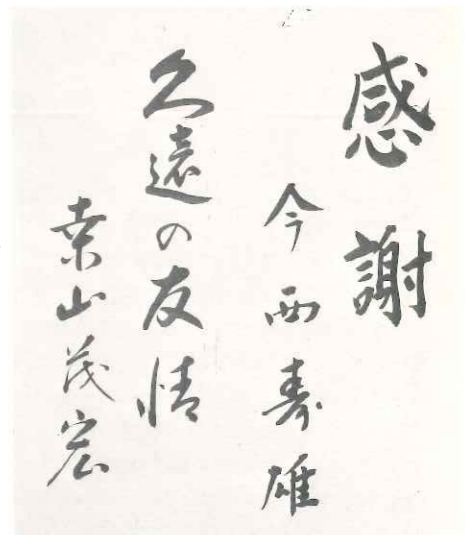 感謝
今西寿雄
久遠の友情
桒山茂宏